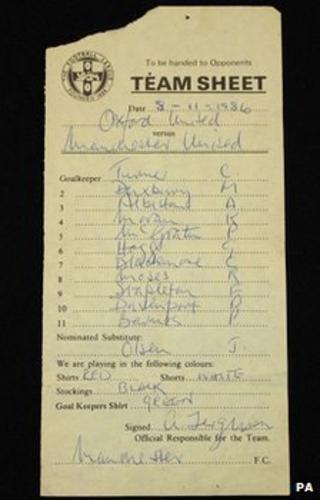 THE FOOTBALL LEAGUE
To be handed to Opponents
TEAM SHEET
Date 8 - 11 - 1986
Oxford United
versus
Manchester United
Goalkeeper Turner C.
2 Duxbury M
3 Albiston A
4 Moran K
5 McGrath P
6 Hogg G
7 Blackmore C
8 Moses R
9 Stapleton F
10 Davenport P
11 Barnes P
Nominated Substitute:
Olsen J.
We are playing in the following colours:
Shirts RED Shorts WHITE
Stockings BLACK
Goal Keepers Shirt GREEN
Signed A. Ferguson
Official Responsible for the Team.
Manchester F.C.
PA